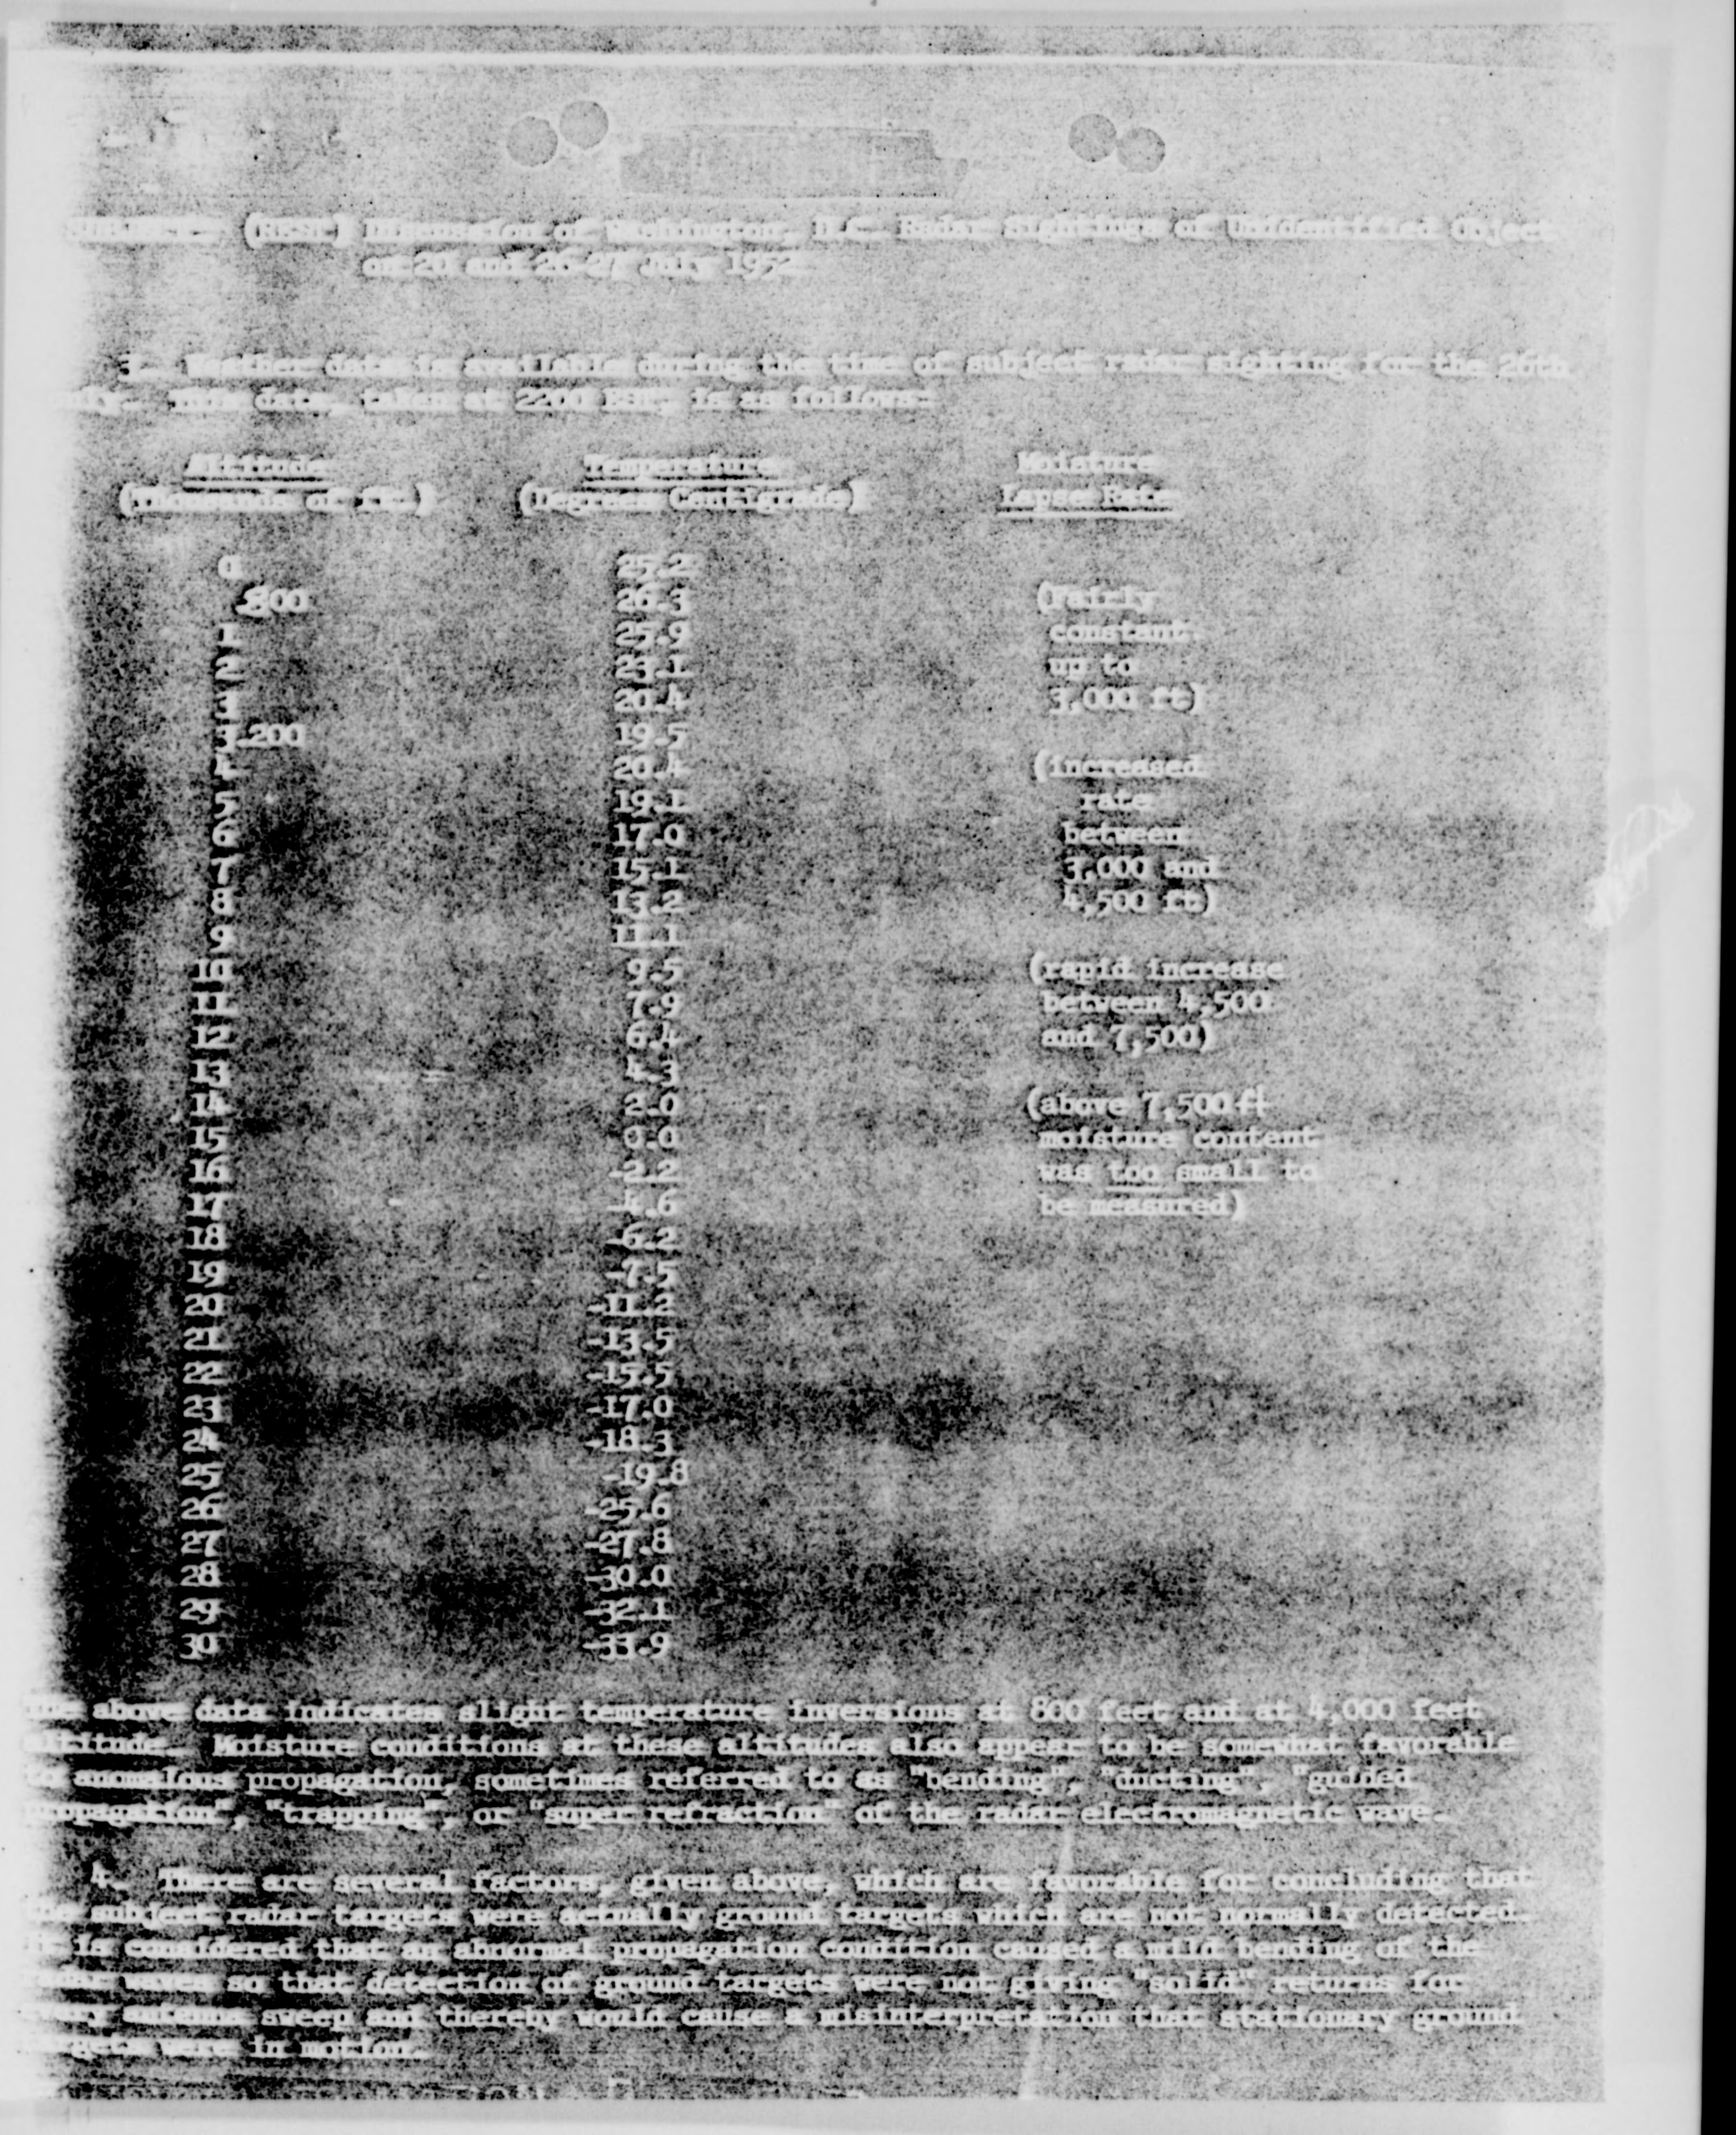 Discussion of Washington, D.C. Radar Sightings of Unidentified Object
on 20 and 26-27 July 1952
3. Weather data is available during the time of subject radar sighting for the 26th
data, taken at 2200 is as follows:
Altitude Temperature Moisture
(Thousands of ft.) (Degrees Centigrade) Lapse Rate
0 25.2
.800 26.3 (fairly
1 25.9 constant
2 up to
3 20.4 3,000 ft)
.200 19.5
4 20.4 (increased
5 19.1 rate
6 17.0 between
7 15.1 3,000 and
8 13.2 4,500 ft)
9 11.1
10 9.5 (rapid increase
11 7.9 between 4,500
12 6.4 and 7,500)
13
14 2.0 (above 7,500 ft
15 0.0 moisture content
16 -2.2 was too small to
17 be measured)
18 -6.2
19 -7.5
20 -11.2
21 -13.5
22 -15.5
23 -17.0
24 -18.3
25 -19.8
26 -25.6
27 -27.8
28 -30.0
29 -32.1
30
above data indicates slight temperature inversions at 800 feet and at 4,000 feet
altitude. Moisture conditions at these altitudes also appear to be somewhat favorable
to anomalous propagation, sometimes referred to as "bending", "ducting", "guided
propagation", "trapping", or "super refraction" of the radar electromagnetic wave.
4. There are several factors, given above, which are favorable for concluding that
the subject radar targets were actually ground targets which are not normally detected.
It is considered that an abnormal propagation condition caused a mild bending of the
radar waves so that detection of ground targets were not giving "solid" returns for
every antenna sweep and thereby would cause a misinterpretation that stationary ground
targets were in motion.